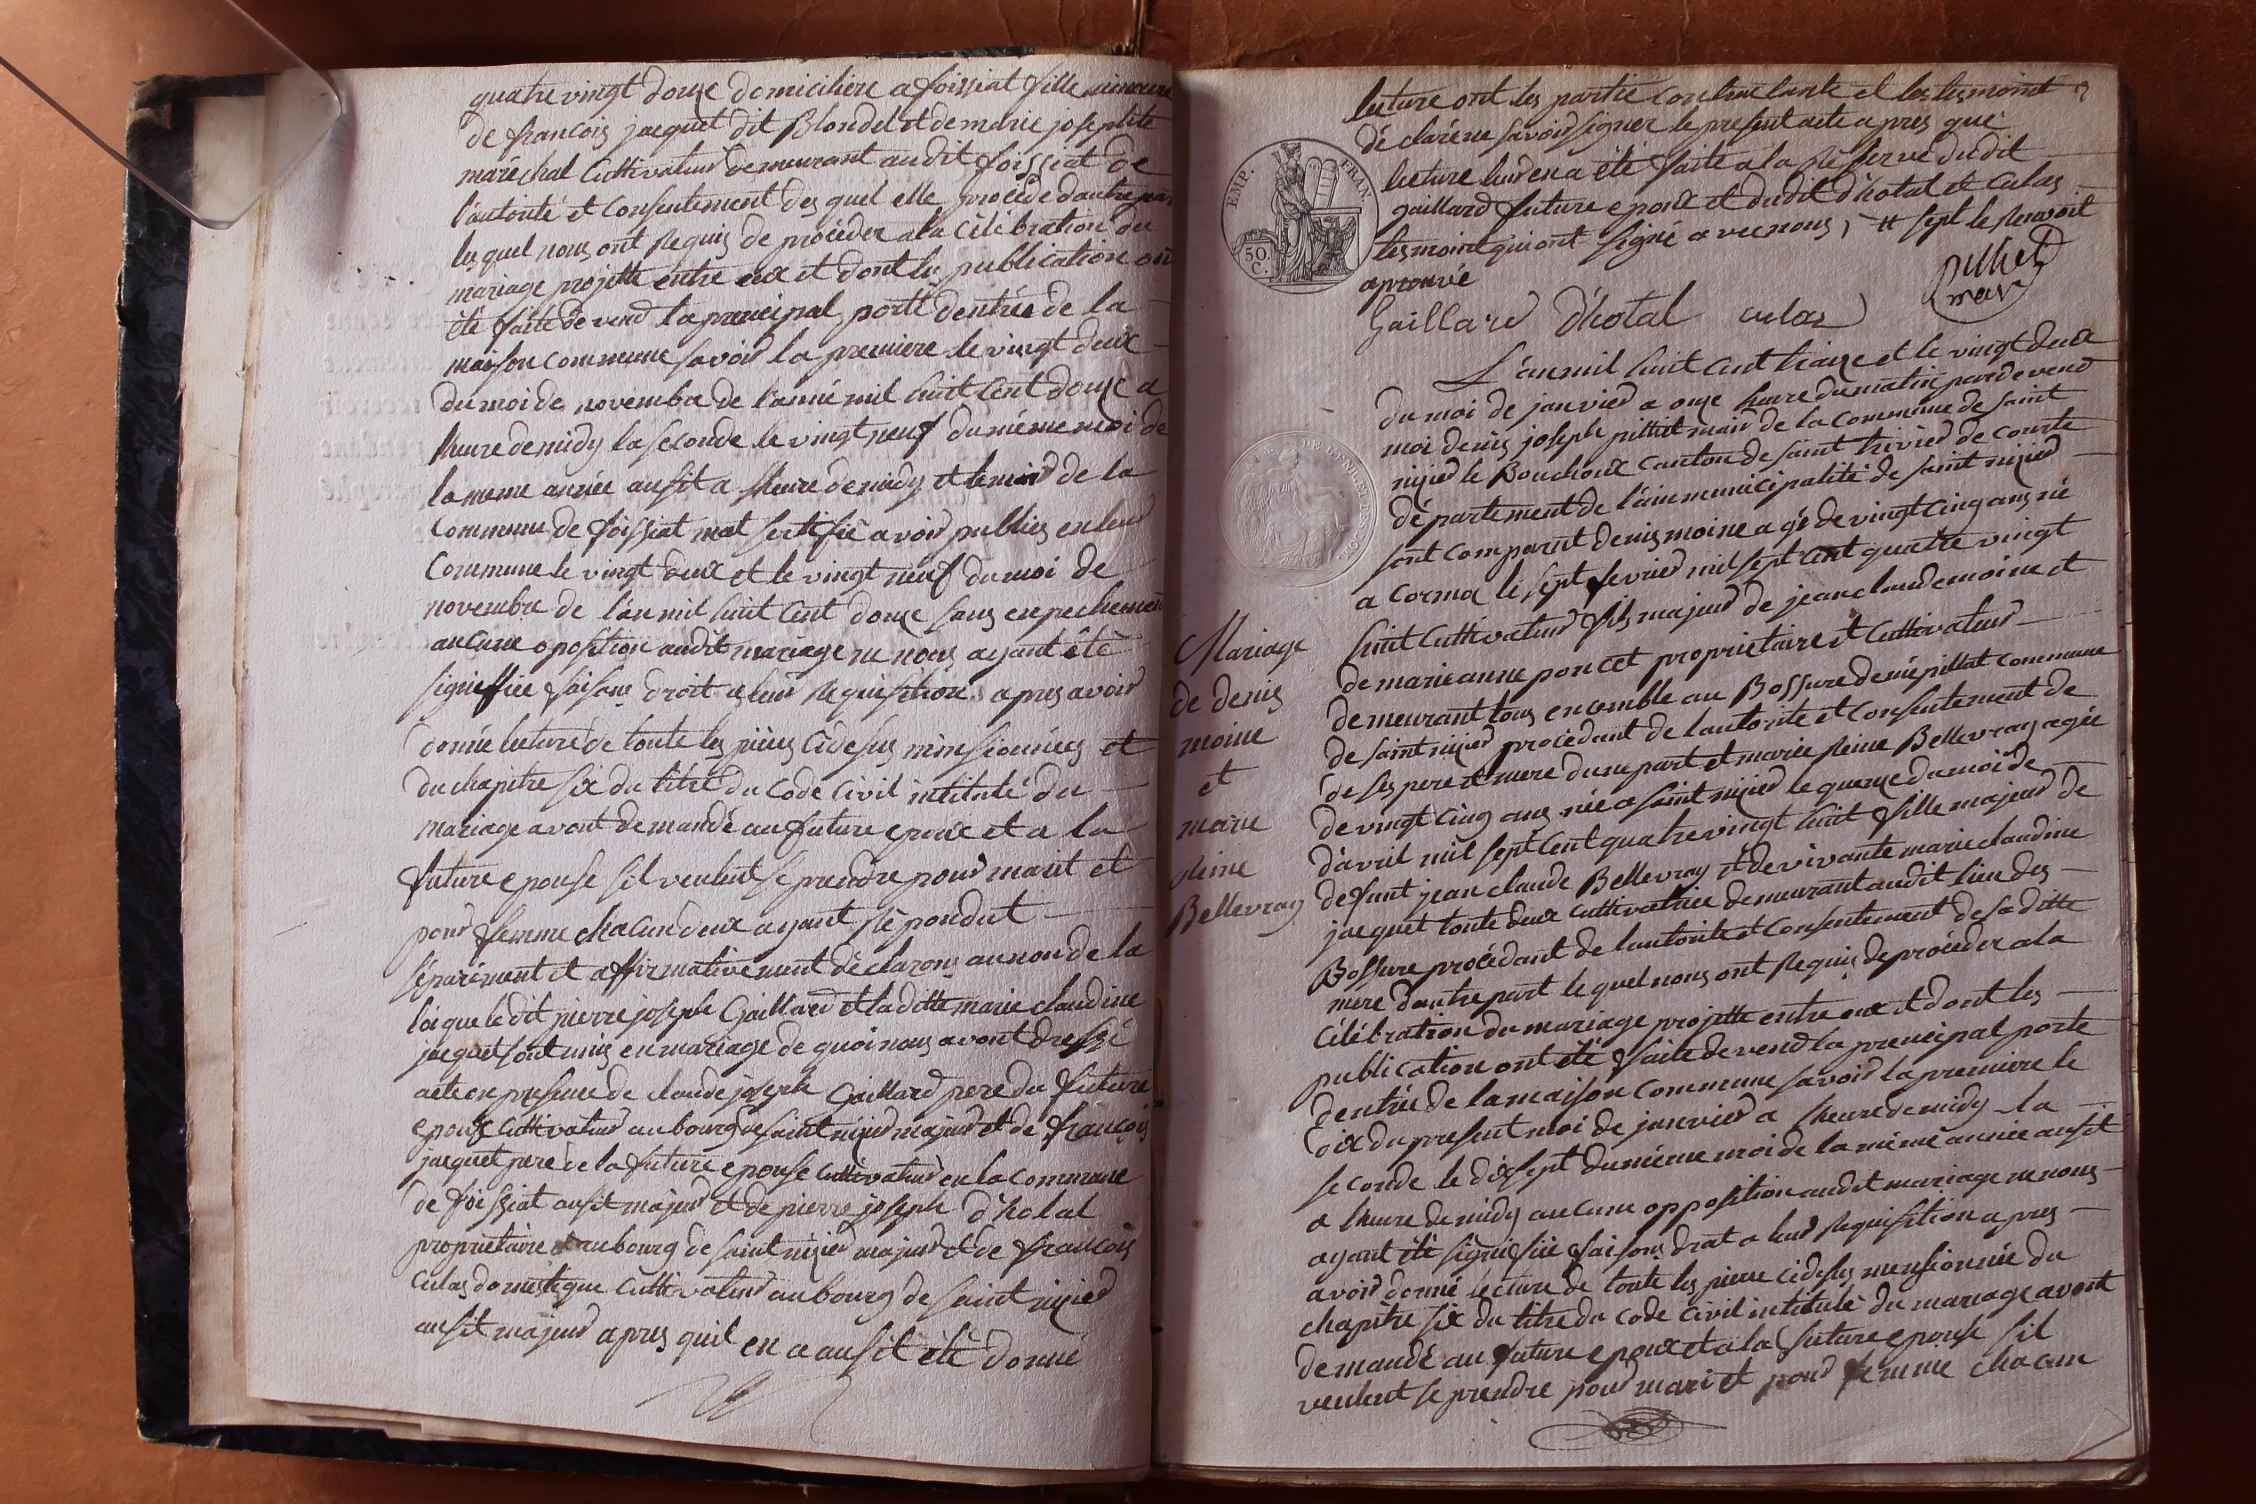 quatre vingt douze domiciliere a foissiat fille mineure
de francois jacquet dit Blondel et de marie josephte
maréchal Cultivateur demeurant audit foissiat de
l'autorité et Consentement des quel elle procède dautre part
les quel nous ont Requis de procéder a la Célébration du
mariage projette entre eux et dont les publication ont
été faite devend la principal porte dentrée de la
maison commune savoir la premiere le vingt deux
du moi de novembre de l'année mil huit Cent douze a
lheure de midy la seconde le vingt neuf du méme moi de
la meme année ausit a lheure de midy et le mair de la
Commune de foissiat mat sertifié avoir publies en leur
Commune le vingt deux et le vingt neuf du moi de
novembre de l'an mil huit Cent douze sans enpechement
aucune oposition audit mariage ne nous ayant été
signiffiée faisans droit a leur Requisition apres avoir
donnée lecture de toute les pièces Cidesus minsionnées et
du chapitre six du titre du Code Civil intitulé du
mariage avont demandé au future epoux et a la
future epouse sil veulent se prendre pour marit et
pour femme chacun deux ayant Répondut
séparément et affirmativement déclarons au non de la
loi que le dit pierre joseph Gaillard et la ditte marie claudine
jacquet sont unis en mariage de quoi nous avont dressé
acte en presence de claude joseph Gaillard pere du future
epoux Cultivateur au bourg de saint nizier majeur et de francois
jacquet pere de la future epouse cultivateur en la commune
de foissiat ausit majeur et de pierre joseph d'hotal
proprietaire au bourg de saint nizier majeur et de francois
Culas domestique Cultivateur au bourg de saint nizier
ausit majeur apres quil en a ausit été donné
lecture ont les partie contractante et les tesmoint
déclaré ne savoir signer le present acte apres que
lecture leur en a été faite a la Réserve dudit
gaillard future epoux et dudit d'hotal et Culas
tesmoint qui ont signé avec nous, # sept le Renvoit
aprouvé
EMP. FRAN.
50. C.
Gaillard D'hotal culas
pilliet
mair
L'an mil huit cent traize et le vingt deux
du moi de janvier a onze heure du matin pardevend
moi denis joseph pilliet mair de la commune de saint
nizier le Bouchoux canton de saint trivier de Courte
département de l'ain municipalité de saint nizier
sont comparut denis moine agé de vingt Cinq ans né
a Cormoz le sept fevrier mil sept cent quatre vingt
huit Cultivateur fils majeur de jean claude moine et
de marie anne poncet proprietaire et Cultivateur
demeurant tous encemble au Bossure de népillat commune
de saint nizier procédant de lautorite et Consentement de
de ses pere et mere dune part et mariee Reine Bellevray agée
de vingt Cinq ans née a saint nizier le quinze du moi de
d'avril mil sept Cent quatre vingt huit fille majeur de
defunt jean claude Bellevray et de vivante marie claudine
jacquet toute deux cultivatrice demeurant audit lieu des
Bossure procédant de lautorite et Consentement de sa ditte
mere dautre part le quel nous ont Requis de procéder a la
Célébration du mariage projette entre eux et dont les
publication ont été faite devend la prencipal porte
dentrée de la maison Commune savoir la premiere le
dix du present moi de janvier a lheure de midy la
seconde le dix sept du méme moi de la même année ausit
a lheure de midy aucune opposition audit mariage ne nous
ayant été signiffiée faisons drat a leur Requisition apres
avoir donné lecture de toute les piece cidesus mensionnée du
chapitre six du titre du Code Civil intitulé du mariage avont
demandé au future epoux et a la future epouse sil
veulent se prendre pour mari et pour femme chacun
Mariage
de denis
moine
et
marie
Reine
Bellevray